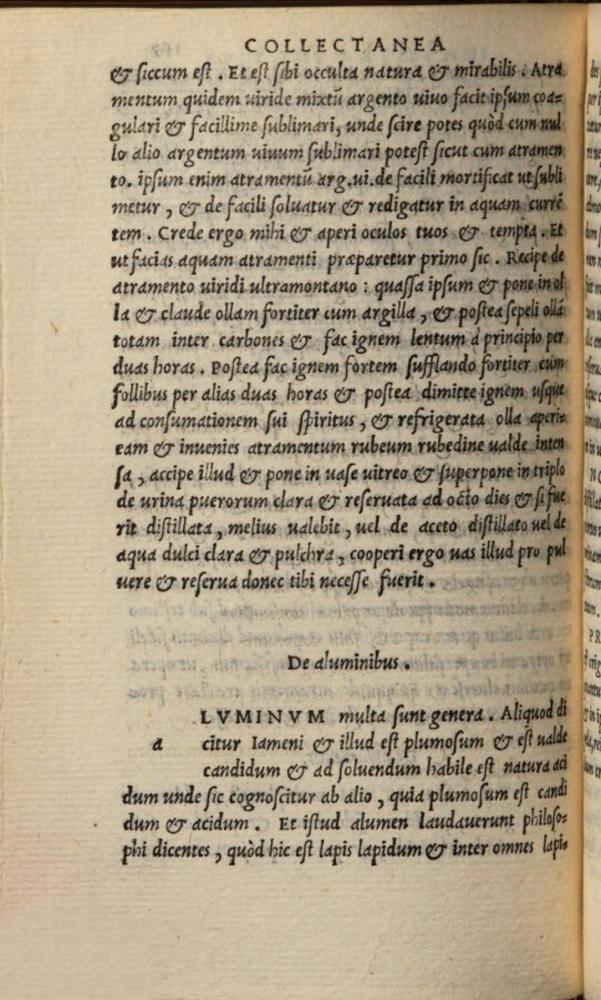 COLLECTANEA
& siccum est . Et est sibi occulta natura & mirabilis . Atra
mentum quidem uiride mixtū argento uiuo facit ipsum coa-
gulari & facillime sublimari, unde scire potes quòd cum nul
lo alio argentum uiuum sublimari potest sicut cum atramen
to. ipsum enim atramentū arg.ui.de facili mortificat ut subli
metur , & de facili soluatur & redigatur in aquam currē
tem . Crede ergo mihi & aperi oculos tuos & tempta . Et
ut facias aquam atramenti præparetur primo sic . Recipe de
atramento uiridi ultramontano : quassa ipsum & pone in ol
la & claude ollam fortiter cum argilla , & postea sepeli ollā
totam inter carbones & fac ignem lentum à principio per
duas horas . Postea fac ignem fortem sufflando fortiter cum
follibus per alias duas horas & postea dimitte ignem usque
ad consumationem sui spiritus , & refrigerata olla aperi-
eam & inuenies atramentum rubeum rubedine ualde inten
sa , accipe illud & pone in uase uitreo & superpone in triplo
de urina puerorum clara & reseruata ad octo dies & si fue
rit distillata, melius ualebit , uel de aceto distillato uel de
aqua dulci clara & pulchra , cooperi ergo uas illud pro pul
uere & reserua donec tibi necesse fuerit .
De aluminibus .
LVMINVM multa sunt genera . Aliquod di
a citur Iameni & illud est plumosum & est ualde
candidum & ad soluendum habile est natura aci
dum unde sic cognoscitur ab alio , quia plumosum est candi
dum & acidum . Et istud alumen laudauerunt philoso-
phi dicentes , quòd hic est lapis lapidum & inter omnes lapi-